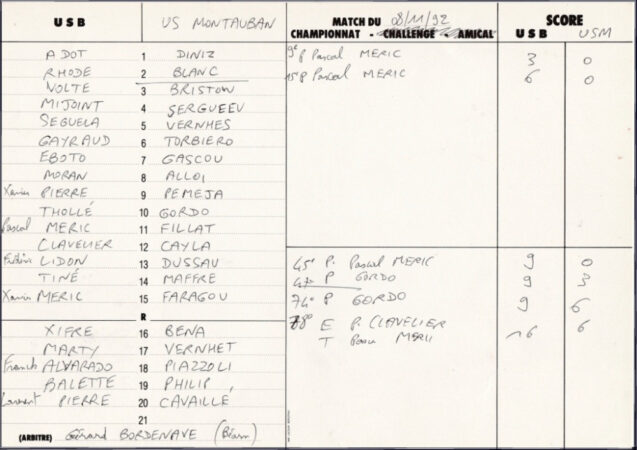 USB US MONTAUBAN MATCH DU 08/11/92 SCORE
CHAMPIONNAT - CHALLENGE - AMICAL USB USM
ADOT 1 DINIZ
RHODE 2 BLANC
VOLTE 3 BRISTOW
MIJOINT 4 SERGUEEV
SEGUELA 5 VERNHES
GAYRAUD 6 TORBIERO
EBOTO 7 GASCOU
MORAN 8 ALLOI
Xavier PIERRE 9 PEMEJA
THOLLÉ 10 GORDO
Pascal MERIC 11 FILLAT
CLAVELIER 12 CAYLA
Frédéric LIDON 13 DUSSAU
TINÉ 14 MAFFRE
Xavier MERIC 15 FARAGOU
R
XIFRE 16 BENA
MARTY 17 VERNHET
Francis ALVARADO 18 PIAZZOLI
BALETTE 19 PHILIP
Laurent PIERRE 20 CAVAILLÉ
21
(ARBITRE) Gérard BORDENAVE (Béarn)
9e P Pascal MERIC 3 0
15e P Pascal MERIC 6 0
45e P. Pascal MERIC 9 0
47e P GORDO 9 3
74e P GORDO 9 6
78e E P. CLAVELIER 16 6
T Pascal MERIC